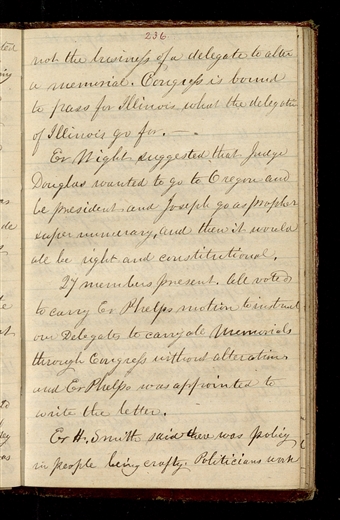 236
not the business of a delegate to alter
a memorial. Congress is bound
to pass for Illinois what the delegates
of Illinois go for. —
Er Wight suggested that Judge
Douglas wanted to go to Oregon and
be president and Joseph go as prophet
super numerary, and then it would
all be right and constitutional.
27 members present. All voted
to carry Er Phelps motion to instruct
our Delegates to carry ale Memorials
through Congress without alterations
and Er Phelps was appointed to
write the letter.
Er H. Smith said there was policy
in people being crafty. Politicians work